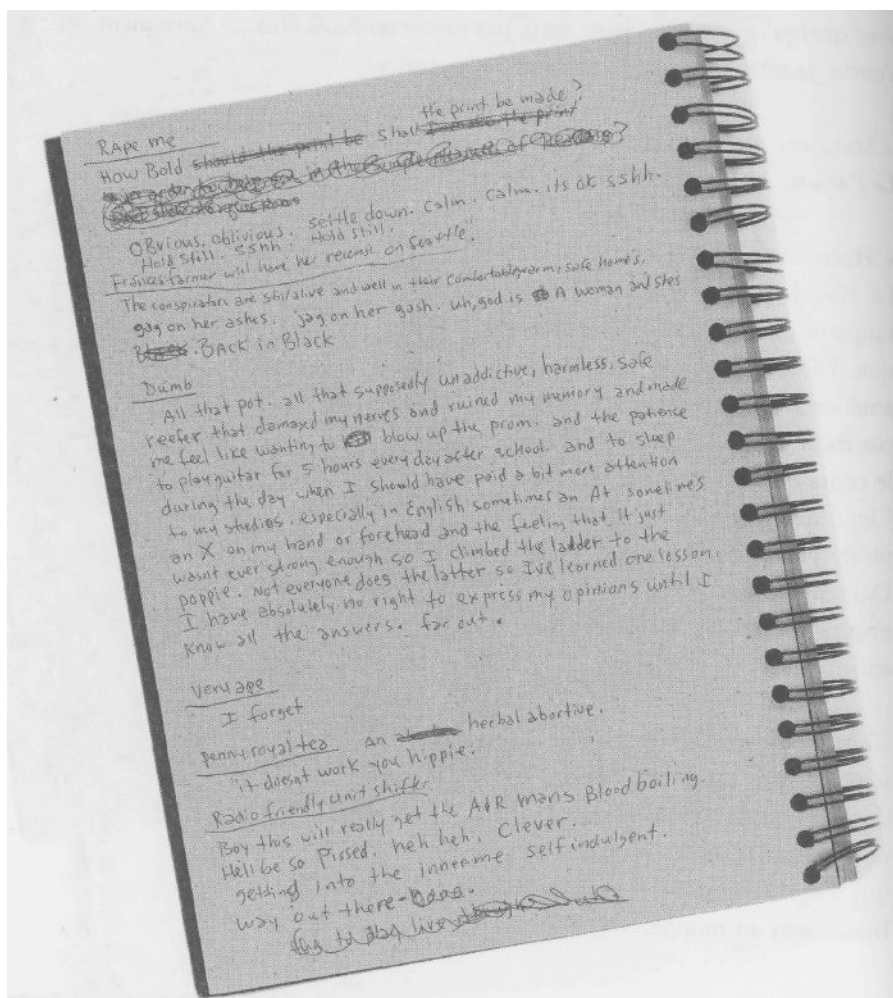 the print be made?
Rape me
How Bold should the print be shall increase the print
in order to in the simple of
OBvious. oblivious. settle down. calm. calm. its ok sshh.
Hold still. sshh. Hold still.
Frances farmer will have her revenge on Seattle".
The conspirators are still alive and well in their comfortable, warm, safe home's.
gag on her ashes. jag on her gash. uh, god is A woman and shes
Black. BACK in Black
Dumb
All that pot. all that supposedly unaddictive, harmless, safe
reefer that damaged my nerves and ruined my memory and made
me feel like wanting to blow up the prom. and the patience
to play guitar for 5 hours everyday after school. and to sleep
during the day when I should have paid a bit more attention
to my studies. especially in English sometimes an At. sometimes
an X on my hand or forehead and the feeling that it just
wasnt ever strong enough so I climbed the ladder to the
poppie. Not everyone does the latter so Ive learned one lesson.
I have absolutely no right to express my opinions until I
know all the answers. far out.
Very ape
I forget
pennyroyal tea An herbal abortive.
"it doesnt work you hippie.
Radio friendly unit shifter
Boy this will really get the A&R mans Blood boiling.
Hell be so pissed. heh heh. Clever.
getting into the inner me self indulgent.
way out there